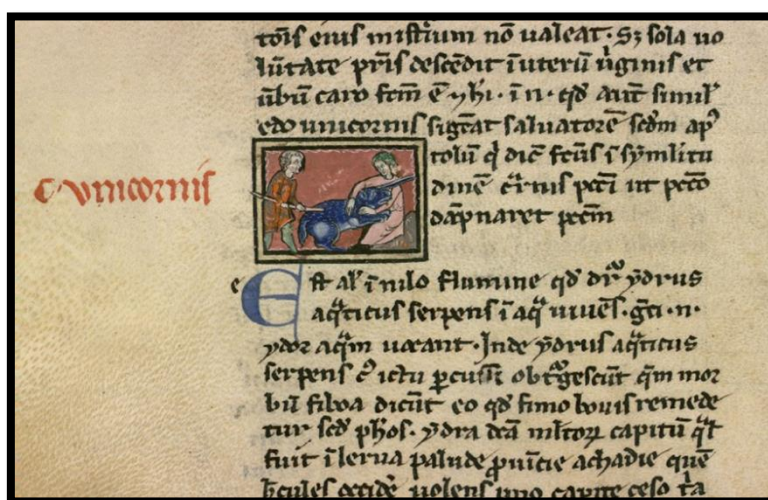 tois eius misterium nō ualeat. Sʒ sola uo
lūtate pr̄is descēdit ī uterū ūginis et
ūbū caro fc̄m ē
edo unicornis sig̅cat saluatorē scd̅m ap̄
c̄ vnicornis
tolū q̇ dic̄ fc̄us ī symlitu
dinē c̄rnis pcc̄i ut pcc̄o
dāpnaret pcc̄m
Est al̄ ī nilo flumine qd̄ dr̄ ydrus
aq̄ticus serpens ī aq̄ uiuēs. gc̄i .n.
ydor aq̄m uocant. Inde ydrus aq̄ticus
serpens ictu ꝑcussi obt̄gescūt q̄m mor
bū dicūt eo qd̄ fimo bouis remede
tur scd̄ ph̄os. ydra dc̄a ml̄torꝝ capitū q̄l
fuit ī lerna palude ꝓuīcie achadie quē
h̄cules occidē uolens uno capite ceso t̄a